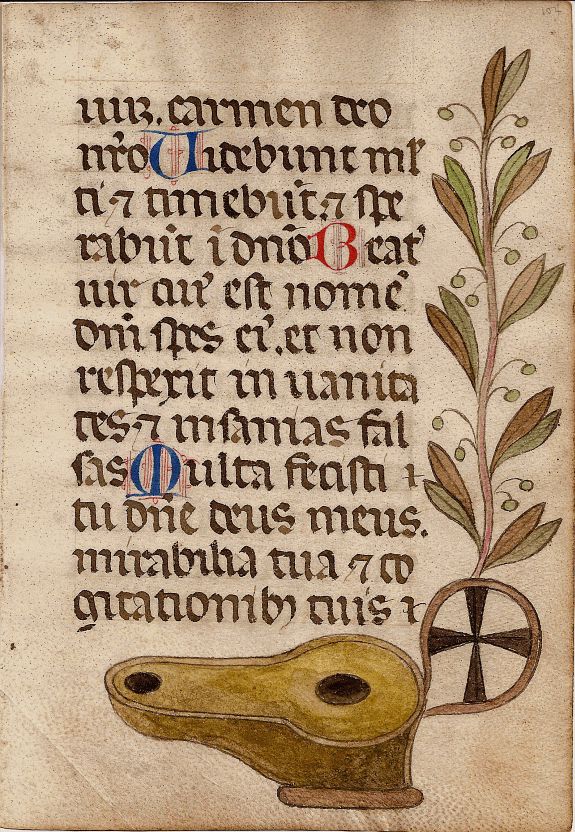 uuꝫ. carmen deo
nr̄o Uidebunt ml̓
ti ⁊ timebūt ⁊ spe
rabūt ī dn̄o Beat᷒
uir cui᷒ est nomē
dn̄i spes ei᷒. et non
respexit in uanita
tes ⁊ insanias fal
sas Multa fecisti
tu dn̄e deus meus.
mirabilia tua ⁊ co
gitationibꝫ tuis ī